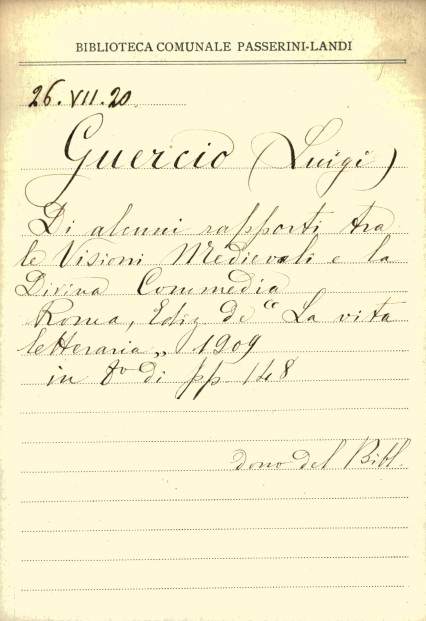 BIBLIOTECA COMUNALE PASSERINI-LANDI
26.VII.20.
Guercio (Luigi)
Di alcuni rapporti tra
le Visioni Medievali e la
Divina Commedia
Roma, Ediz de “ La vita
letteraria „ 1909
in 8º di pp. 148
dono del Bibl.